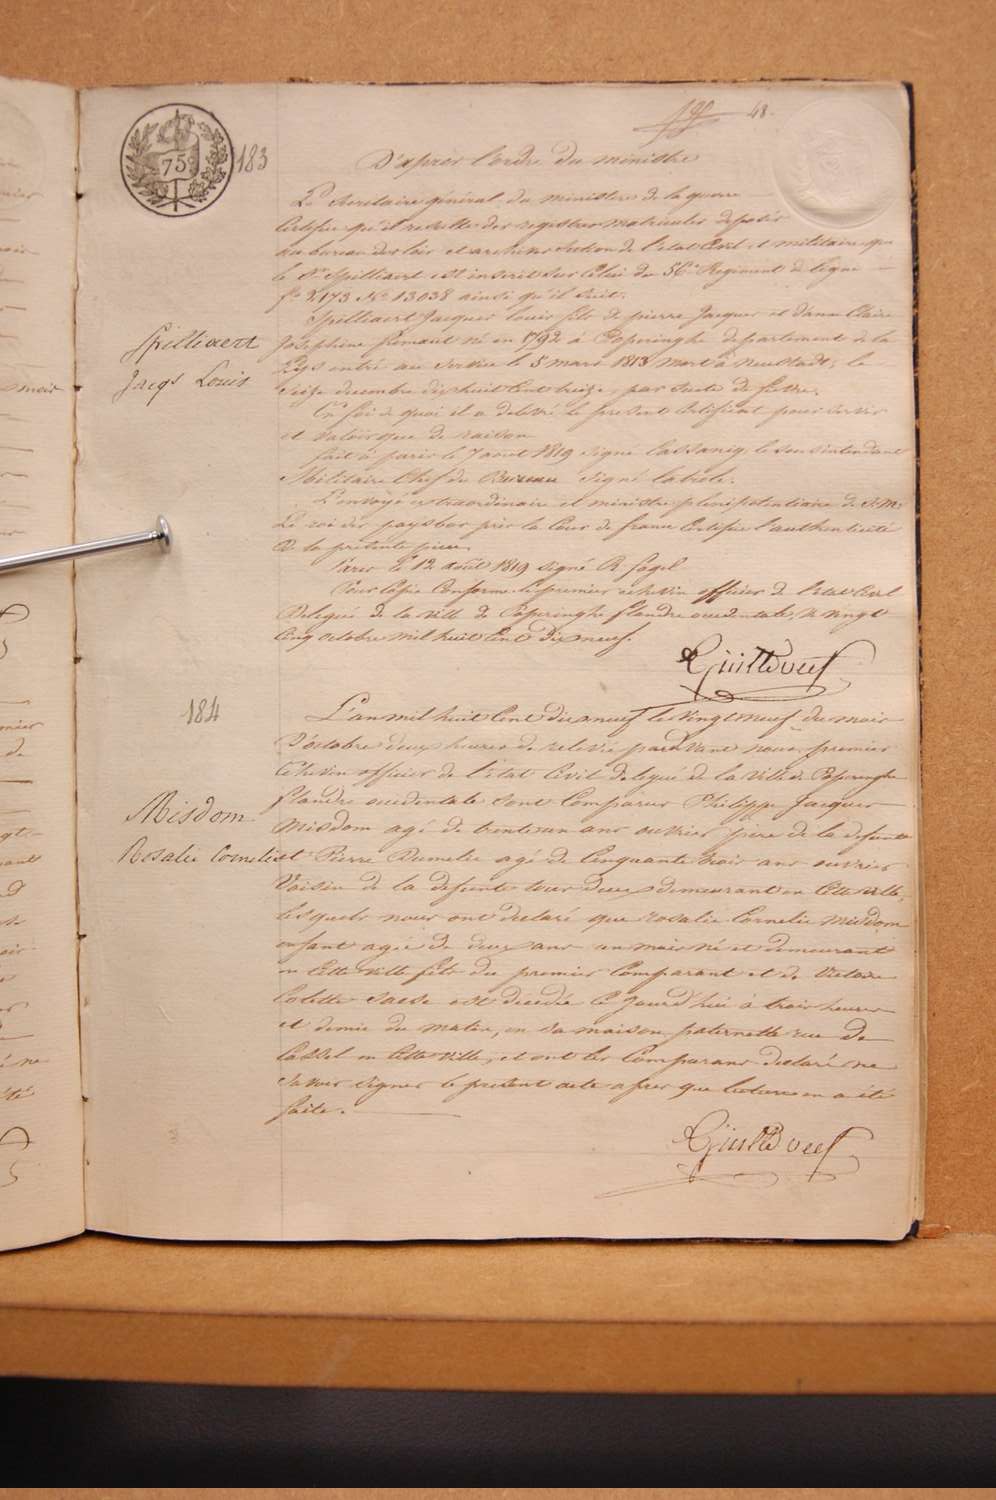 48.
75c
183
D'après l'ordre du ministre
Le Secretaire général du ministère de la guerre
Certifie qu'il resulte des registres matricules deposés
au bureau des lois et archives Section de l'état Civil et militaire que
le Sr Spilliaert est inscrit sur celui du 56e Regiment de ligne
fo 2173 No 13038 ainsi qu'il suit.
Spilliaert Jacques Louis fils de pierre Jacques et d'anne Claire
Spilliaert
Jacqs Louis
Josephine né en 1792 à Poperinghe departement de la
Lys entré au service le 5 mars 1813 mort à Neustadt, le
Seize decembre dix huit Cent treize, par suite de fievre.
En foi de quoi il a delivré le present Certificat pour servir
et valoir que de raison
fait à paris le 7 aout 1819 signé Cassaing, le Sous intendant
Militaire Chef du Bureau signé
L'envoyé extraordinaire et ministre plenipotentiaire de S: M:
Le roi des pays bas près la Cour de france Certifie l'authenticité
de la présente piece.
Paris le 12 août 1819 signé R. fagel
Pour Copie Conforme le premier echevin officier de l'etat Civil
Delegué de la ville de Poperinghe flandre occidentale, le vingt
Cinq octobre mil huit Cent dix neuf.
184
L'an mil huit Cent dix neuf le vingt neuf du mois
D'octobre deux heures de relevée pardevant nous, premier
Echevin officier de l'état Civil delegué de la ville de Poperinghe
flandre occidentale sont Comparus Philippe Jacques
Misdom
Rosalie Cornelie
Misdom agé de trente un ans ouvrier père de la defunte
et Pierre Dumelie agé de Cinquante trois ans ouvrier
Voisin de la defunte tous deux demeurant en Cette ville,
Lesquels nous ont declaré que rosalie Cornelie misdom
enfant agée de deux ans un mois né et demeurant
en Cette ville fille du premier Comparant et de Victoire
Colette est decedée Ce jourd'hui à trois heures
et demie du matin, en sa maison paternelle rue de
Cassel en Cette ville, et ont les Comparans declaré ne
Savoir signer le présent acte après que lecture en a été
faite.